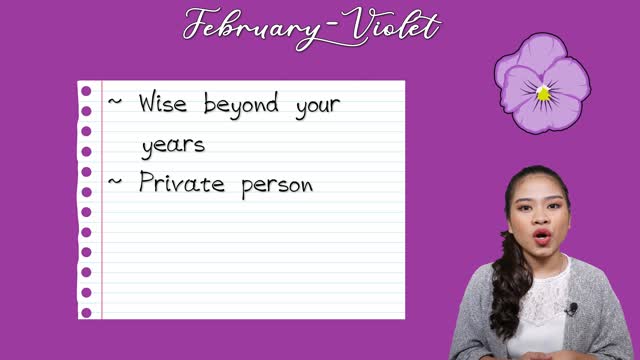 February-Violet
~ Wise beyond your
years
~ Private person